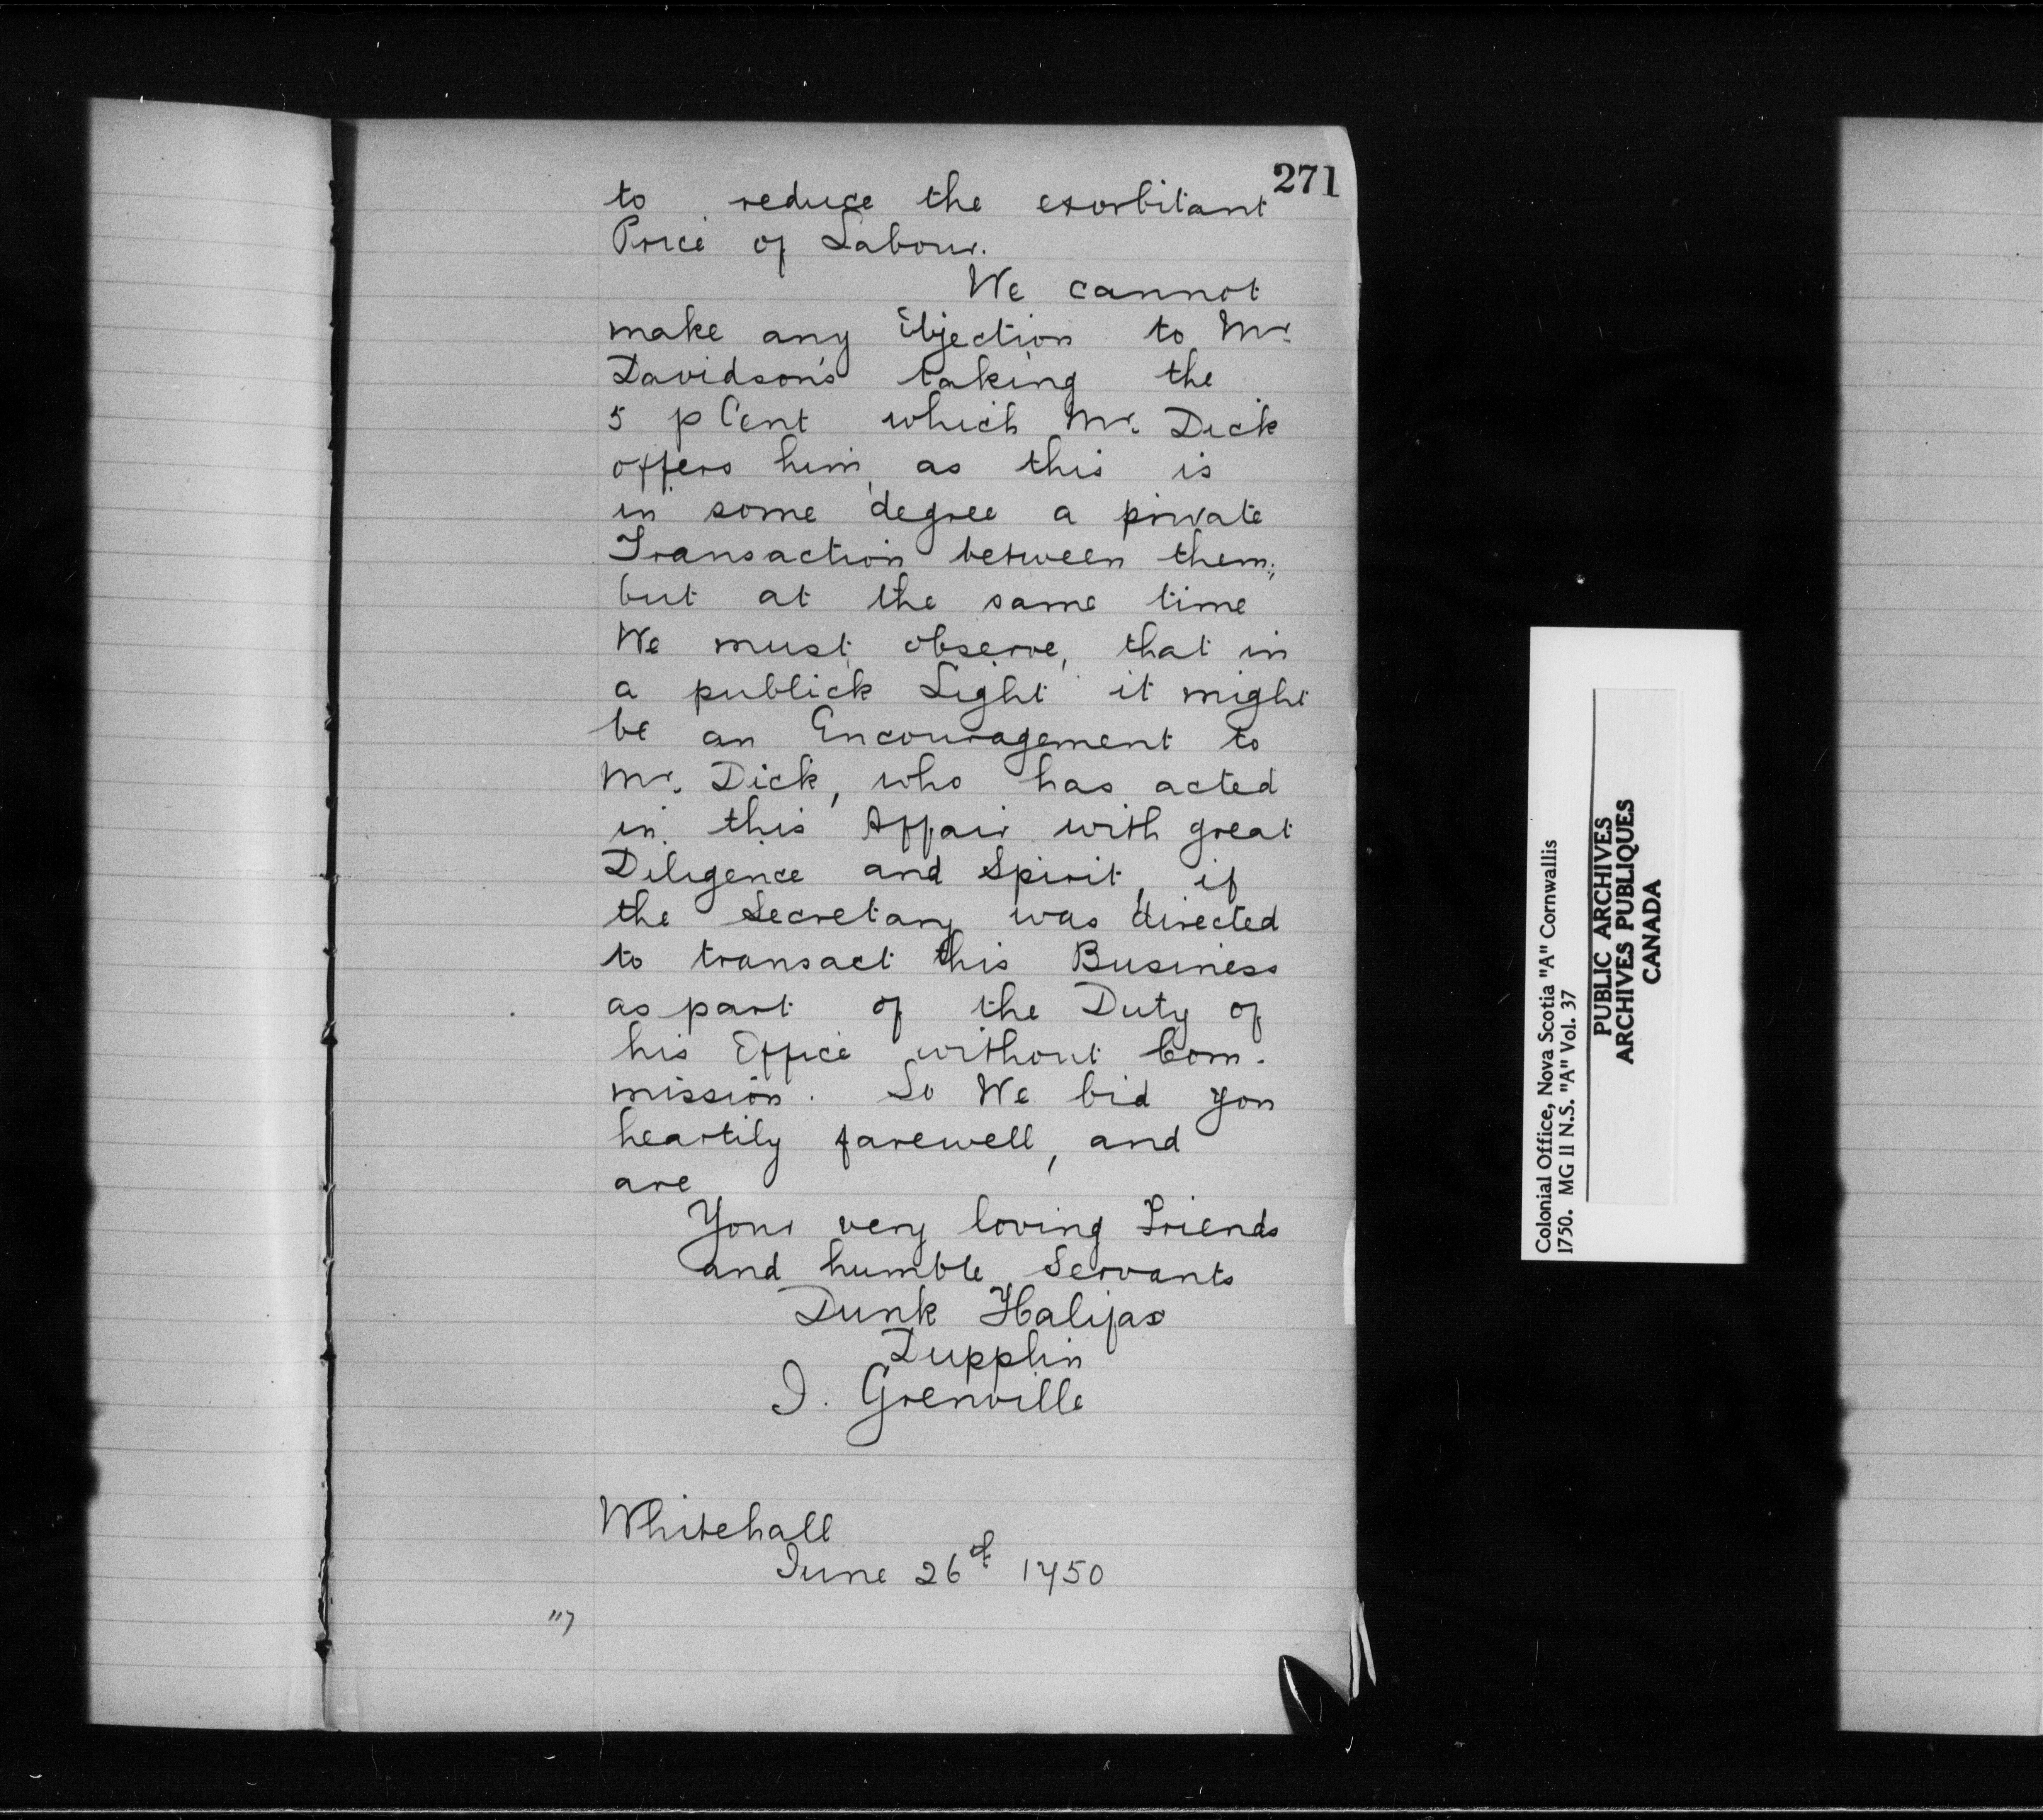 271
to reduce the exorbitant
Price of Labour.
We cannot
make any Objection to Mr.
Davidson's taking the
5 p Cent which Mr. Dick
offers him, as this is
in some degree a private
Transaction between them;
but at the same time
We must observe, that in
a publick Light it might
be an Encouragement to
Mr. Dick, who has acted
in this Affair with great
Diligence and Spirit, if
the Secretary was directed
to transact this Business
as part of the Duty of
his Office without Com-
mission. So We bid you
heartily farewell, and
are
Your very loving Friends
and humble Servants
Dunk Halifax
Dupplin
J. Grenville
Whitehall
June 26th 1750
"7
Colonial Office, Nova Scotia "A" Cornwallis
1750. MG II N.S. "A" Vol. 37
PUBLIC ARCHIVES
ARCHIVES PUBLIQUES
CANADA